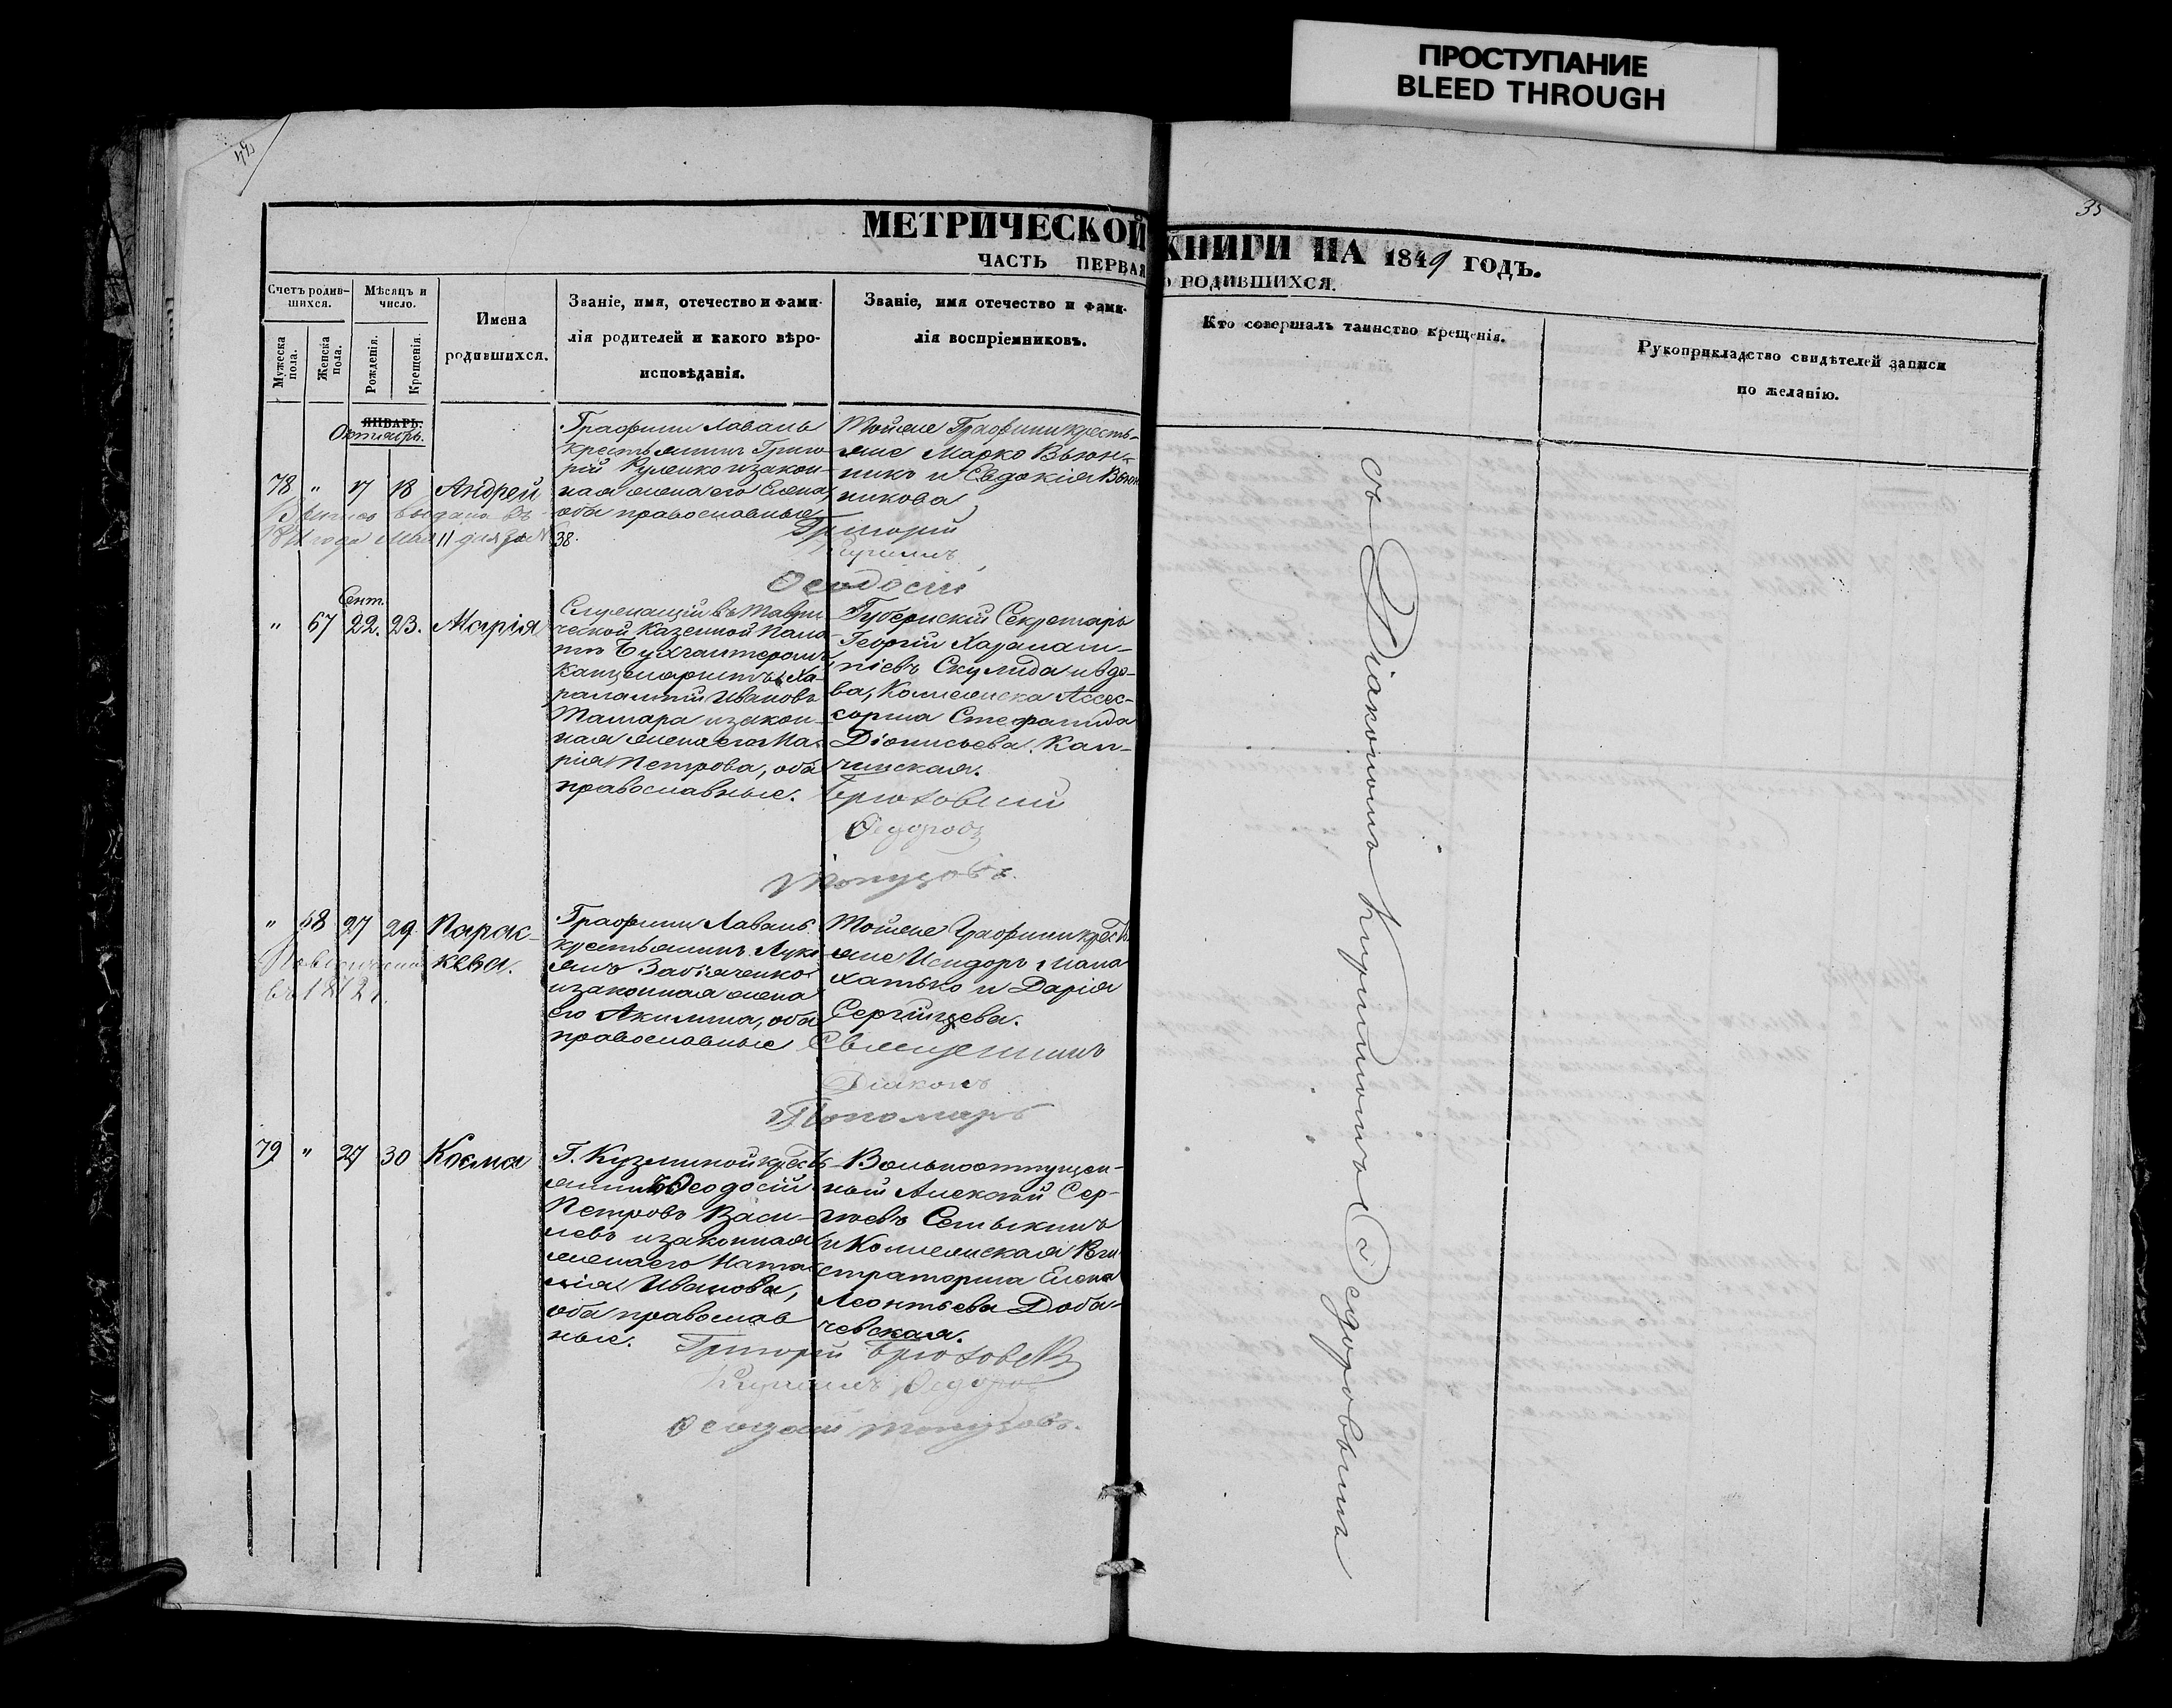 ПРОСТУПАНИЕ
BLEED THROUGH
35
МЕТРИЧЕСКОЙ КНИГИ НА 1849 ГОДЪ.
ЧАСТЬ ПЕРВАЯ О РОДИВШИХСЯ.
Счетъ родив-
шихся.
Мужеска
пола.
Женска
пола.
Мѣсяцъ и
число.
Рожденія.
Крещенія.
Имена
родившихся.
Званіе, имя, отечество и фами-
лія родителей и какого вѣро-
исповѣданія.
Званіе, имя отечество и фами-
лія воспріемниковъ.
Кто совершалъ таинство крещенія.
Рукоприкладство свидѣтелей записи
по желанію.
ЯНВАРЬ.
Октябрь.
78 " 17 18 Андрей
выдана
года Мая 11 дня за № 38.
Графини Лаваль
крестьянинъ Григо-
рій Руленко и закон-
ная жена его Елена
оба православные
Тойже Графини кресть-
яне Марко Вьюн-
никъ и Евдокія Вьюн
никова
Григорій
Кириллъ
Ѳеодосій
Сент.
" 67 22. 23. Марія
Служащій въ Таври-
ческой Казенной Пала-
тѣ Бухгалтеромъ
Канцеляристъ Ха-
рал­ампій Ивановъ
Тамара и закон-
ная жена его Ма-
рія Петрова, оба
православные.
Губернскій Секретарь
Георгій Харалам-
піевъ Скулида и вдо-
ва, Коллежска Ассес-
сорша Стефанида
Діонисьева Кап-
чинская.
Брюховскій
Ѳедоровъ
" 68 27 29 Парас-
кева.
Графини Лаваль
крестьянинъ Луки-
янъ Забіяченко
и законная жена
его Акилина, оба
православные
Тойже Графини крест
яне Исидоръ Мана
хатько и Дарія
Сергійцева.
Священникъ
Діаконъ
Пономарь
79 " 27 30 Косма
Г. Кузминой крест
янинъ Ѳеодосій
Петровъ Васи-
левъ и законная
жена его Ната-
лія Иванова,
оба православ
ные.
Вольноотпущен-
ный Алексѣй Сер-
гѣевъ Семыкинъ
и Коллежская Реги
страторша Елена
Леонтьева Доба-
чевская.
Григорій Брюховскій
Кириллъ Ѳедоровъ
Ѳеодосій
съ Діакономъ Кирилломъ Ѳедоровымъ